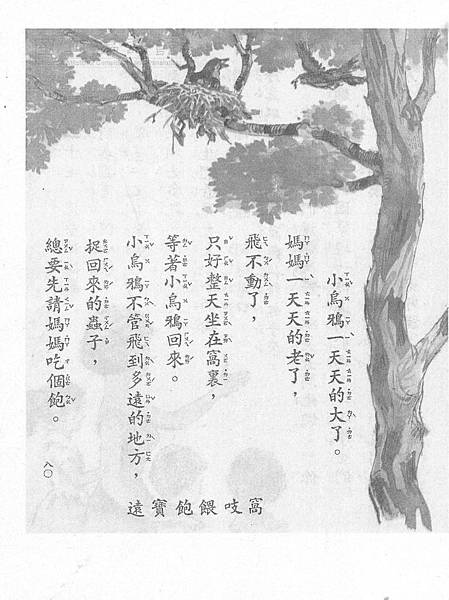 小烏鴉一天天的大了。
媽媽一天天的老了，
飛不動了，
只好整天坐在窩裏，
等著小烏鴉回來。
小烏鴉不管飛到多遠的地方，
捉回來的蟲子，
總要先請媽媽吃個飽。
八〇
窩吱餵飽寶遠